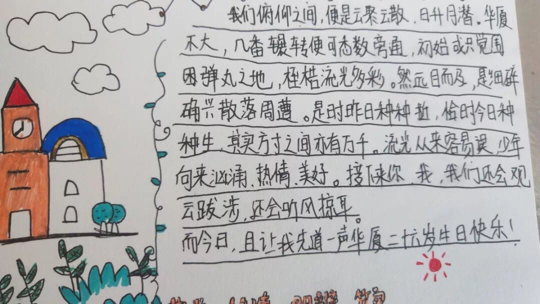 我们俯仰之间,便是云聚云散,日升月落。华厦
不大,几番辗转便可悉数旁通,初始或只觉囿
困弹丸之地,桎梏流光多彩。然远目而及,是细碎
确兴散落周遭。是时昨日种种逝,恰时今日种
种生,其实方寸之间亦有万千。流光从来容易误,少年
向来汹涌、热情、美好。接下来你我,我们还会观
云跋涉,还会听风掠耳。
而今日,且让我先道一声华厦二十六岁生日快乐!